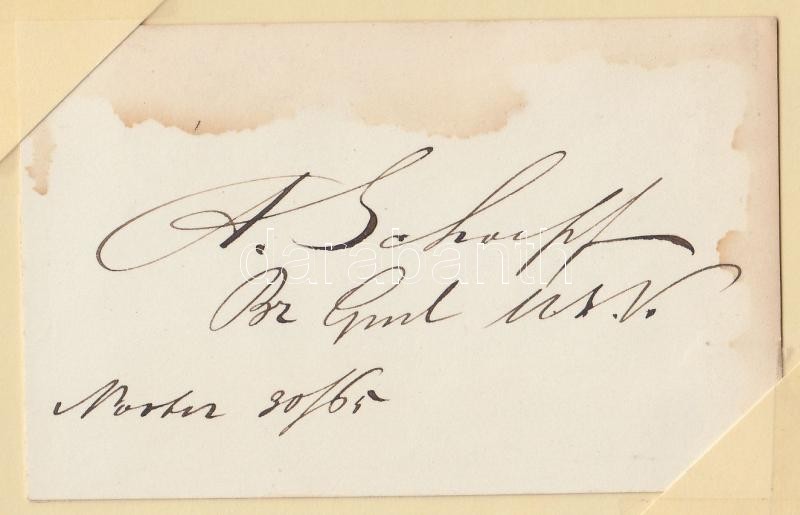 A. Schoepf
Br Genl U.S.V.
darabanth
30/65